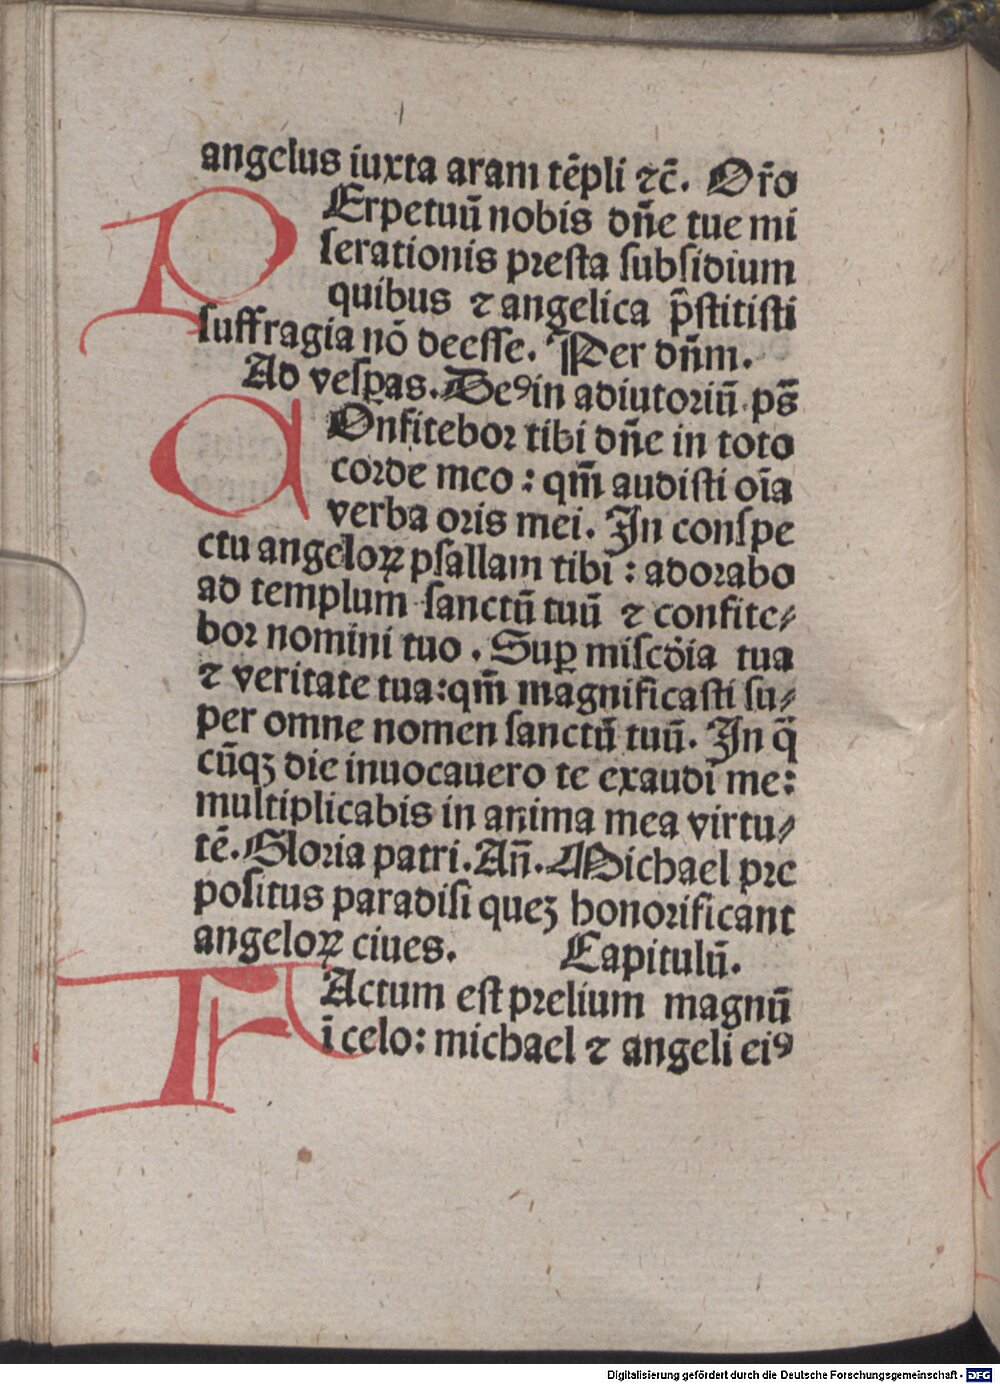 angelus iuxta aram tēpli ⁊c̄. Or̄o
PErpetuū nobis dn̄e tue mi
serationis presta subsidium
quibus ⁊ angelica p̄stitisti
suffragia nō deesse. Per dn̄m.
Ad vesꝑas. Deꝰ in adiutoriū ps̄
COnfitebor tibi dn̄e in toto
corde meo : qm̄ audisti oīa
verba oris mei. In conspe
ctu angeloꝝ psallam tibi : adorabo
ad templum sanctū tuū ⁊ confite⸗
bor nomini tuo . Suꝑ misc̄dia tua
⁊ veritate tua: qm̄ magnificasti su⸗
per omne nomen sanctū tuū. In q̄
cūqꝫ die inuocauero te exaudi me:
multiplicabis in anima mea virtu⸗
tē. Gloria patri. An̄. Michael pre
positus paradisi queꝫ honorificant
angeloꝝ ciues. Capitulū.
FActum est prelium magnū
ī celo: michael ⁊ angeli eiꝰ
Digitalisierung gefördert durch die Deutsche Forschungsgemeinschaft - DFG